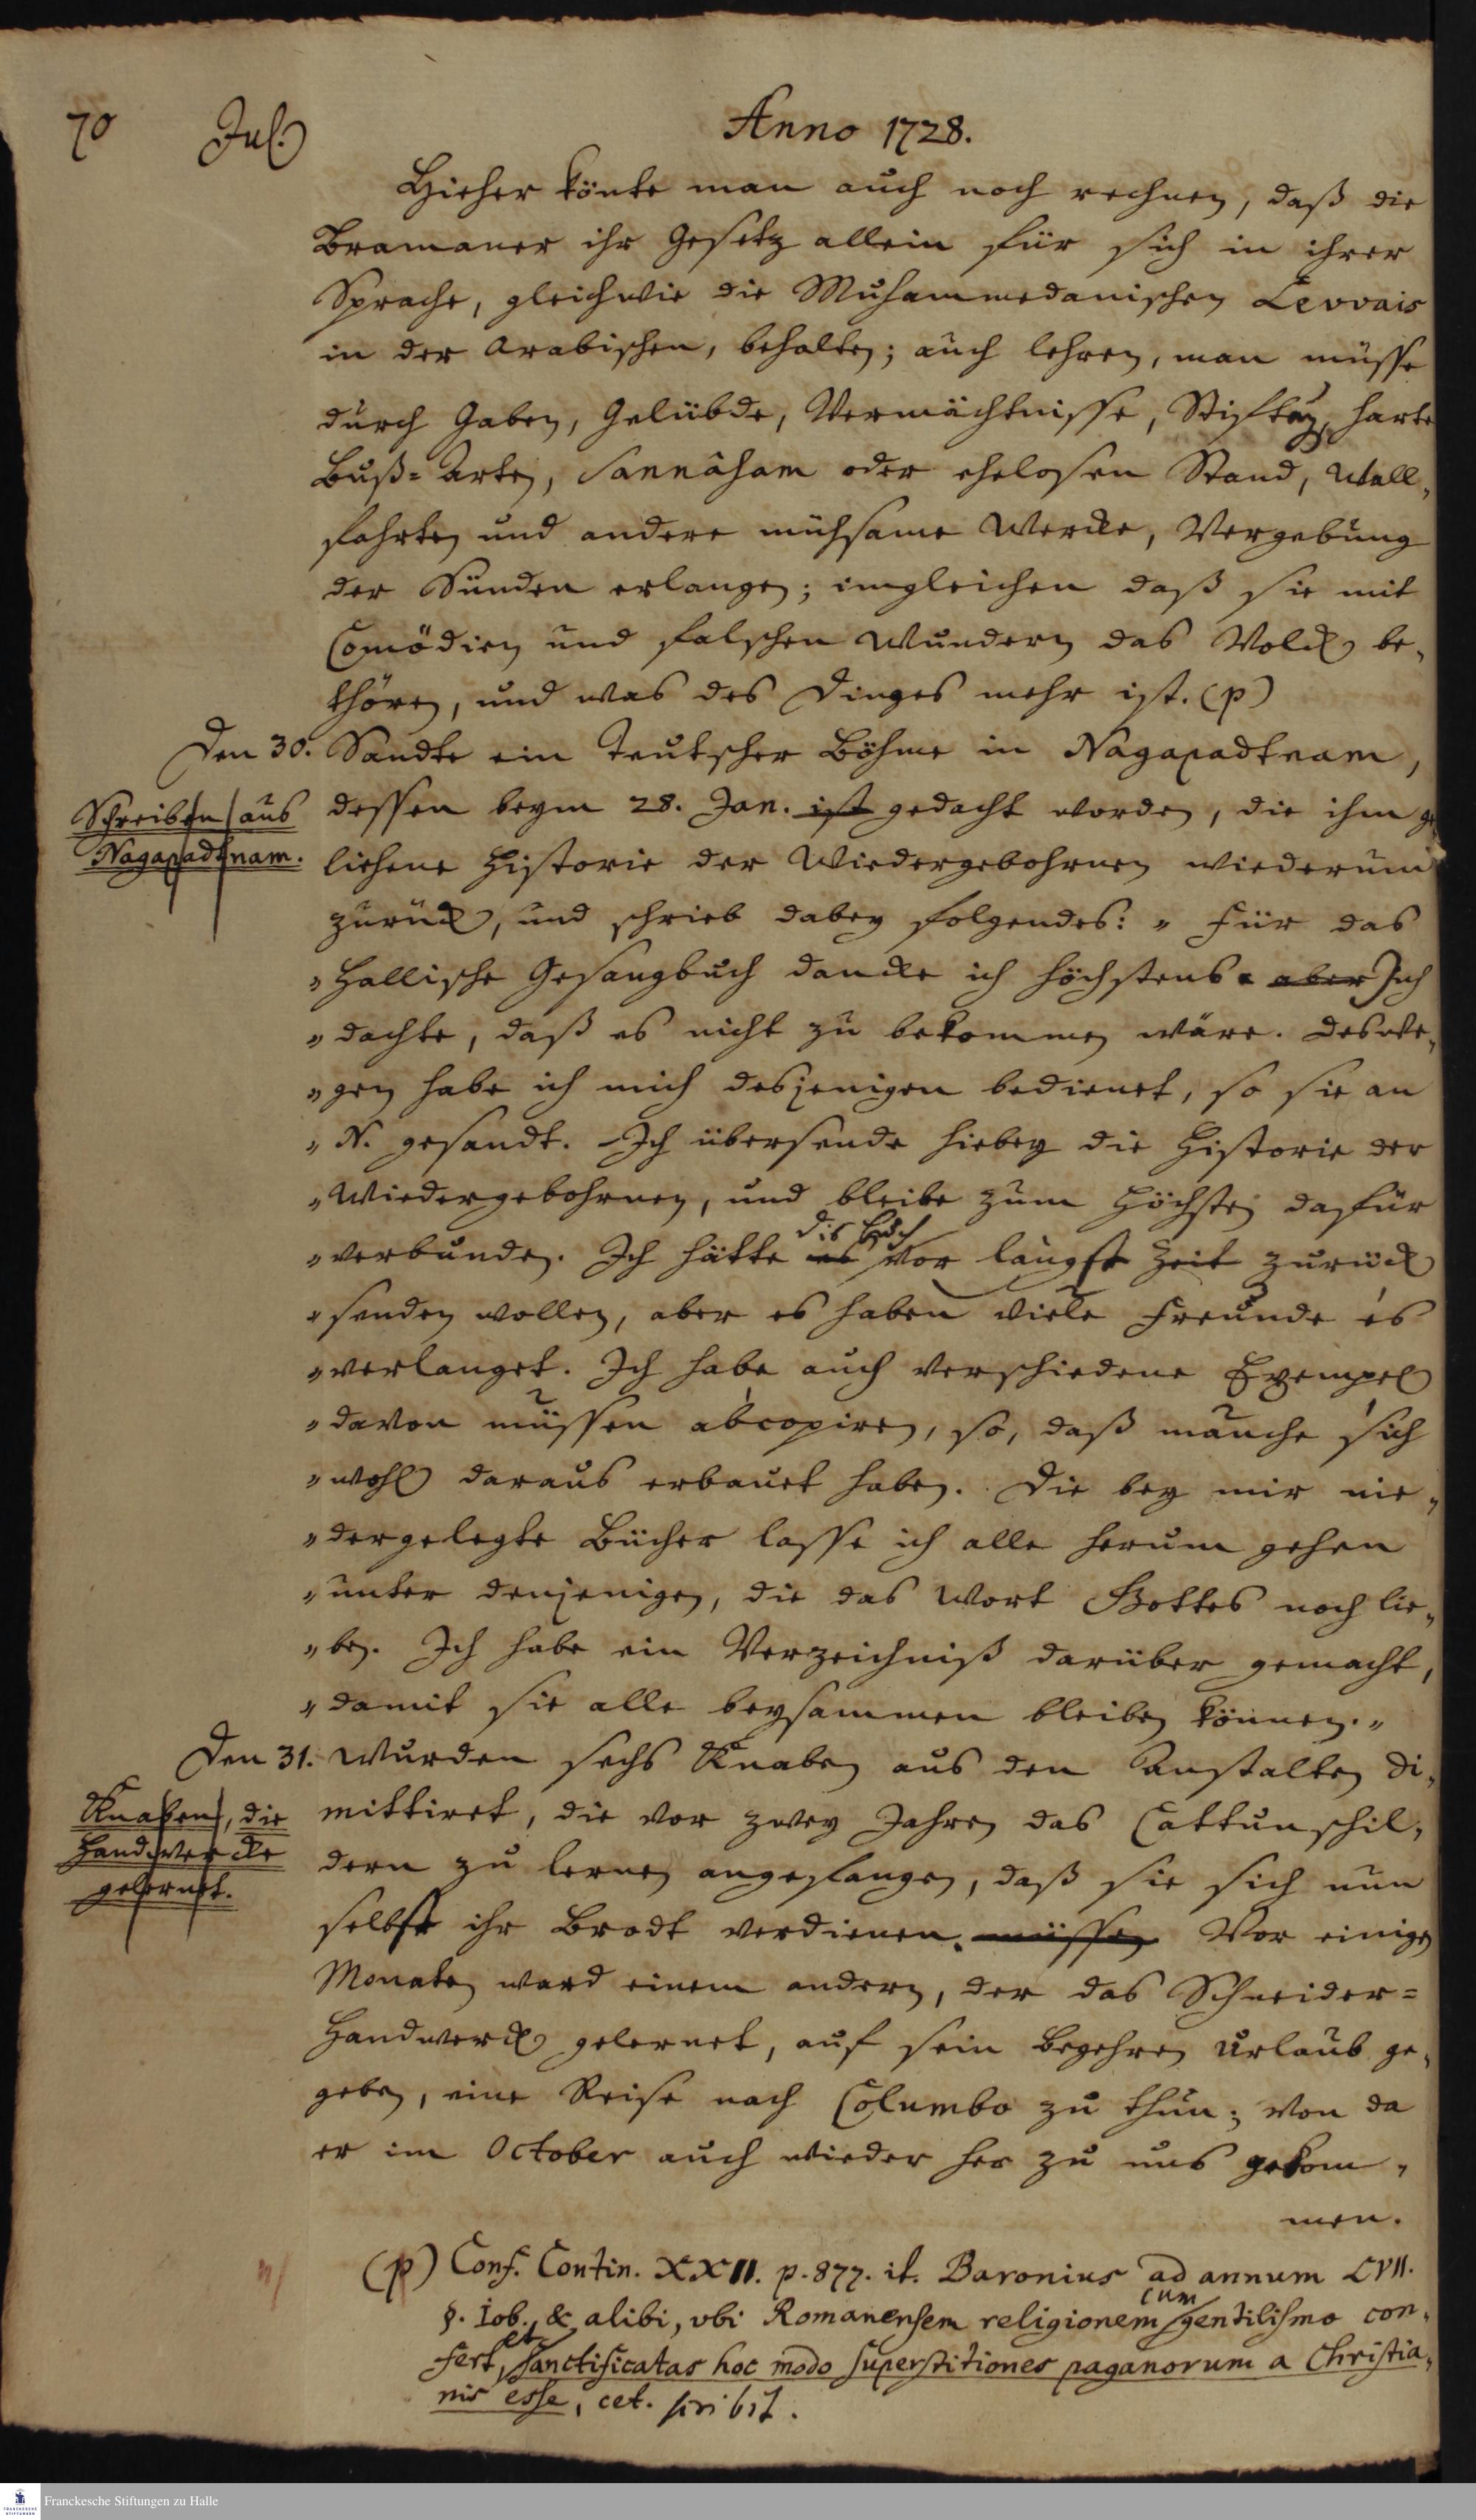 70 Jul. Anno 1728.
Hieher könte man auch noch rechnen, daß die
Bramaner ihr Gesetz allein für sich in ihrer
Sprache, gleichwie die Muhammedanischen Levvais
in der Arabischen, behalten; auch lehren, man müsse
durch Gaben, Gelübde, Vermächtnisse, Stiften, harte
Buß-Arten, Sannâham oder ehelosen Stand, Wall,
fahrten und andere mühsame Wercke, Vergebung
der Sünden erlangen; imgleichen daß sie mit
Comödien und falschen Wundern das Volck be,
thören, und was des Dinges mehr ist. (p)
Den 30. Sandte ein Teutscher Böhme in Nagapadtnam,
Schreiben aus
Nagapadtnam.
dessen beym 28. Jan. ist gedacht worden, die ihm ge
liehene Historie der Wiedergebohrnen wiederum
zurück, und schrieb dabey folgendes: „ Für das
„ Hallische Gesangbuch dancke ich höchstens. aber Ich
„ dachte, daß es nicht zu bekommen wäre. Deswe,
„ gen habe ich mich desjenigen bedienet, so sie an
„ N. gesandt. Ich übersende hiebey die Historie der
„ Wiedergebohrnen, und bleibe zum Höchsten dafür
dis Buch
„ verbunden. Ich hätte es vor längst Zeit zurück
„ senden wollen, aber es haben viele Freunde es
„ verlanget. Ich habe auch verschiedene Exempel
„ davon müssen abcopiren, so, daß manche sich
„ wohl daraus erbauet haben. Die bey mir nie,
„ dergelegte Bücher lasse ich alle herum gehen
„ unter denjenigen, die das Wort Gottes noch lie,
„ ben. Ich habe ein Verzeichniß darüber gemacht,
„ damit sie alle beysammen bleiben können. „
Den 31. Wurden sechs Knaben aus den Anstalten di,
Knaben, die
Handwercke
gelernet.
mittiret, die vor zwey Jahren das Cattunschil,
dern zu lernen angefangen, daß sie sich nun
selbst ihr Brodt verdienen. müssen Vor einigen
Monaten ward einem andern, der das Schneider=
Handwerck gelernet, auf sein Begehren Urlaub ge,
geben, eine Reise nach Columbo zu thun; von da
er im October auch wieder her zu uns gekom,
men.
(p) Conf. Contin. XXII. p. 877. it. Baronius ad annum LVII.
cum
§. Iob., & alibi, vbi Romanensem religionem gentilismo con,
et
fert, sanctificatas hoc modo superstitiones paganorum a Christia,
nis esse, cet. scribit.
Franckesche Stiftungen zu Halle
FRANCKESCHE
STIFTUNGEN